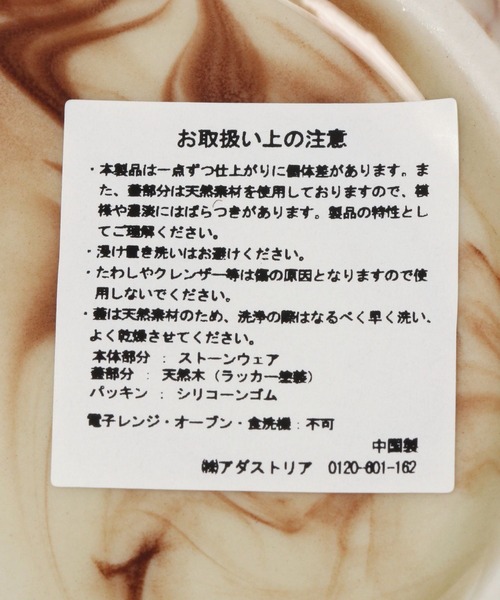 お取扱い上の注意
・本製品は一点ずつ仕上がりに個体差があります。ま
た、蓋部分は天然素材を使用しておりますので、模
様や濃淡にはばらつきがあります。製品の特性とし
てご理解ください。
・浸け置き洗いはお避けください。
・たわしやクレンザー等は傷の原因となりますので使
用しないでください。
・蓋は天然素材のため、洗浄の際はなるべく早く洗い、
よく乾燥させてください。
本体部分 : ストーンウェア
蓋部分 : 天然木（ラッカー塗装）
パッキン : シリコーンゴム
電子レンジ・オーブン・食洗機：不可
中国製
㈱アダストリア 0120-601-162